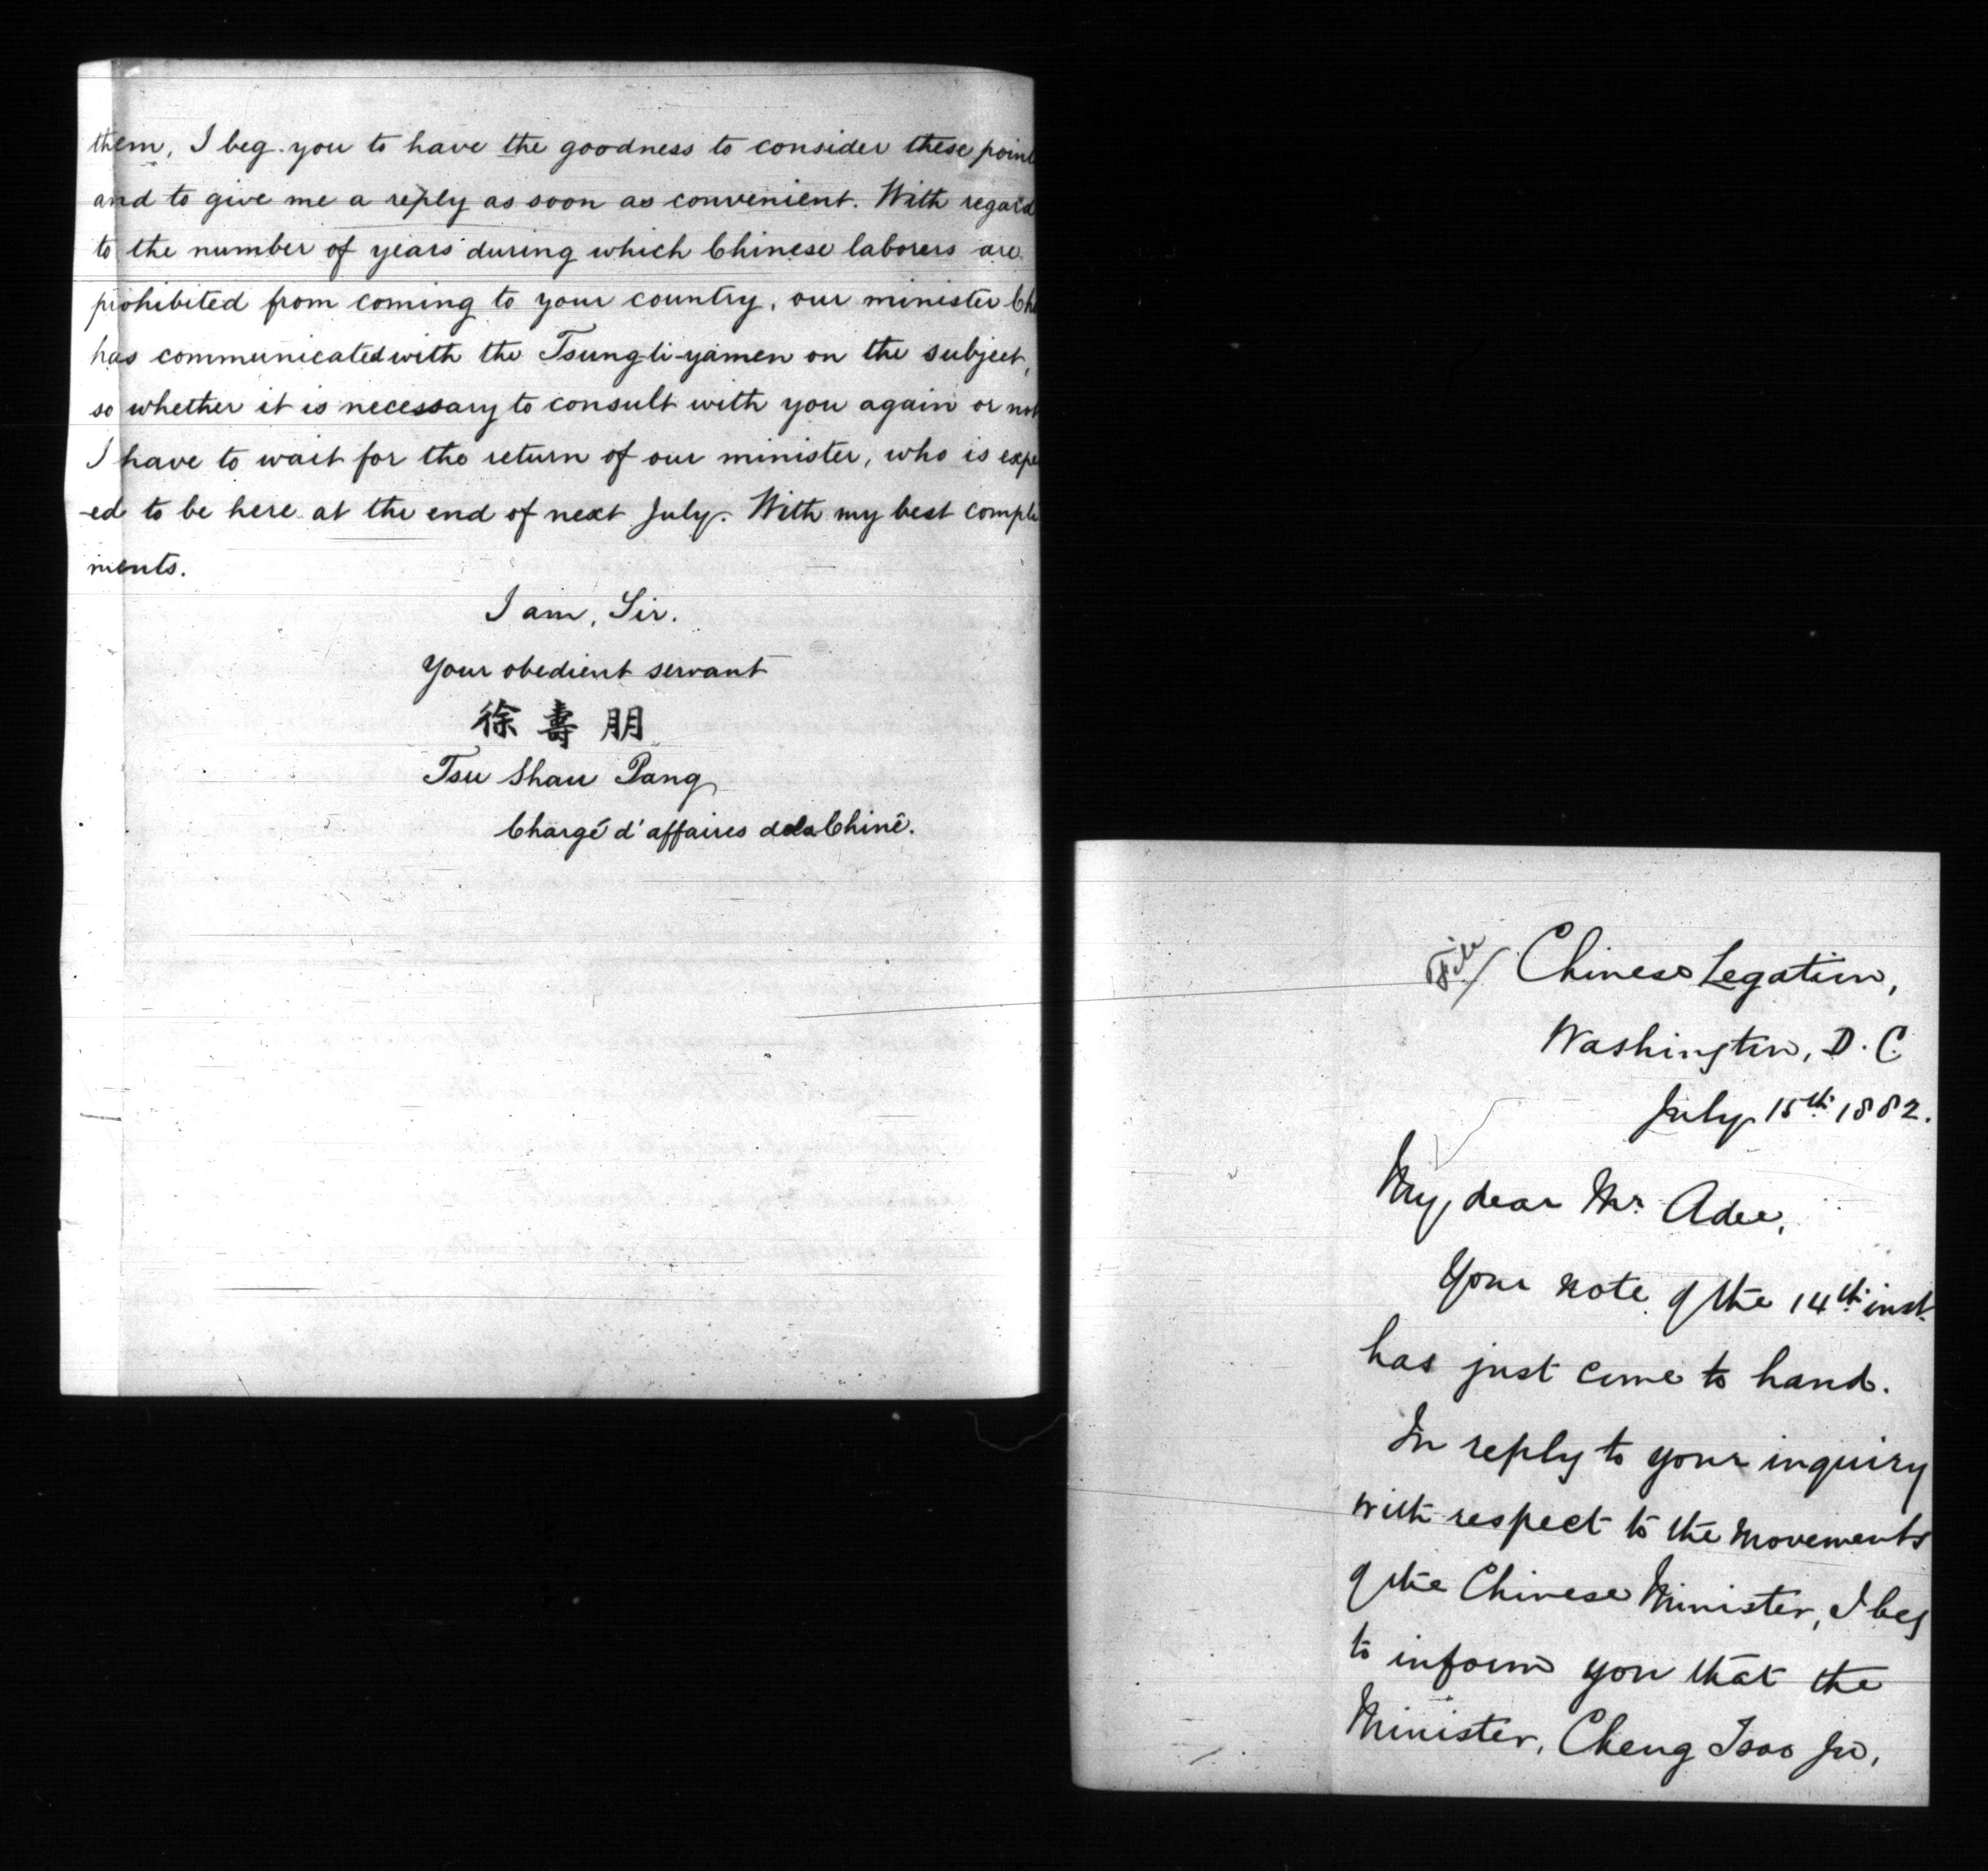 them, I beg you to have the goodness to consider these point
and to give me a reply as soon as convenient. With regard
to the number of years during which Chinese laborers are
prohibited from coming to your country, our minister Che
has communicated with the Tsung-li-yamen on the subject,
so whether it is necessary to consult with you again or not
I have to wait for the return of our minister, who is expe
-ed to be here at the end of next July. With my best compli
ments.
I am, Sir.
Your obedient servant
徐壽朋
Tsu Shau Pang
Chargé d'affaires de la Chine.
File
Chinese Legation,
Washington, D.C.
July 15th 1882.
My dear Mr. Adee,
Your note of the 14th inst.
has just come to hand.
In reply to your inquiry
with respect to the movements
of the Chinese Minister, I beg
to inform you that the
Minister, Cheng Tsao Ju,